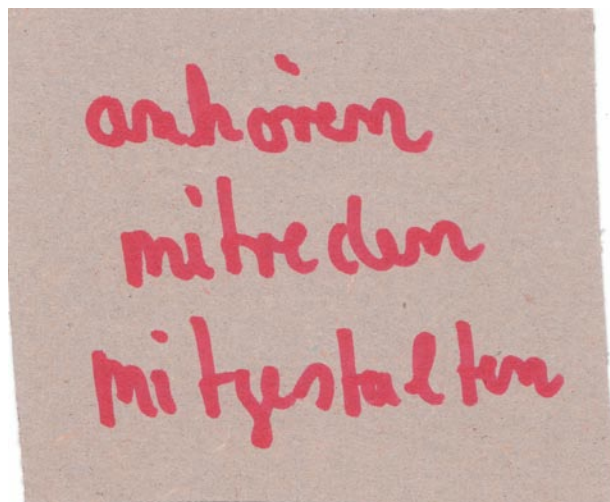 anhören
mitreden
mitgestalten